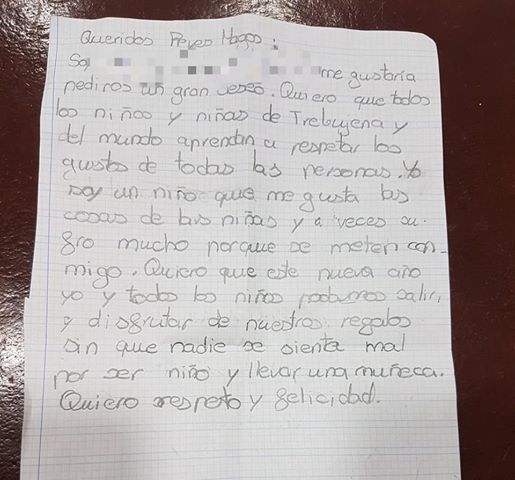 Queridos Reyes Magos:
Soy me gustaría
pediros un gran deseo. Quiero que todos
los niños y niñas de Trebujena y
del mundo aprendan a respetar los
gustos de todas las personas. Yo
soy un niño que me gusta las
cosas de las niñas y a veces su-
fro mucho porque se meten con-
migo. Quiero que este nueva año
yo y todos los niños podamos salir,
y disfrutar de nuestros regalos
sin que nadie se sienta mal
por ser niño y llevar una muñeca.
Quiero respeto y felicidad.